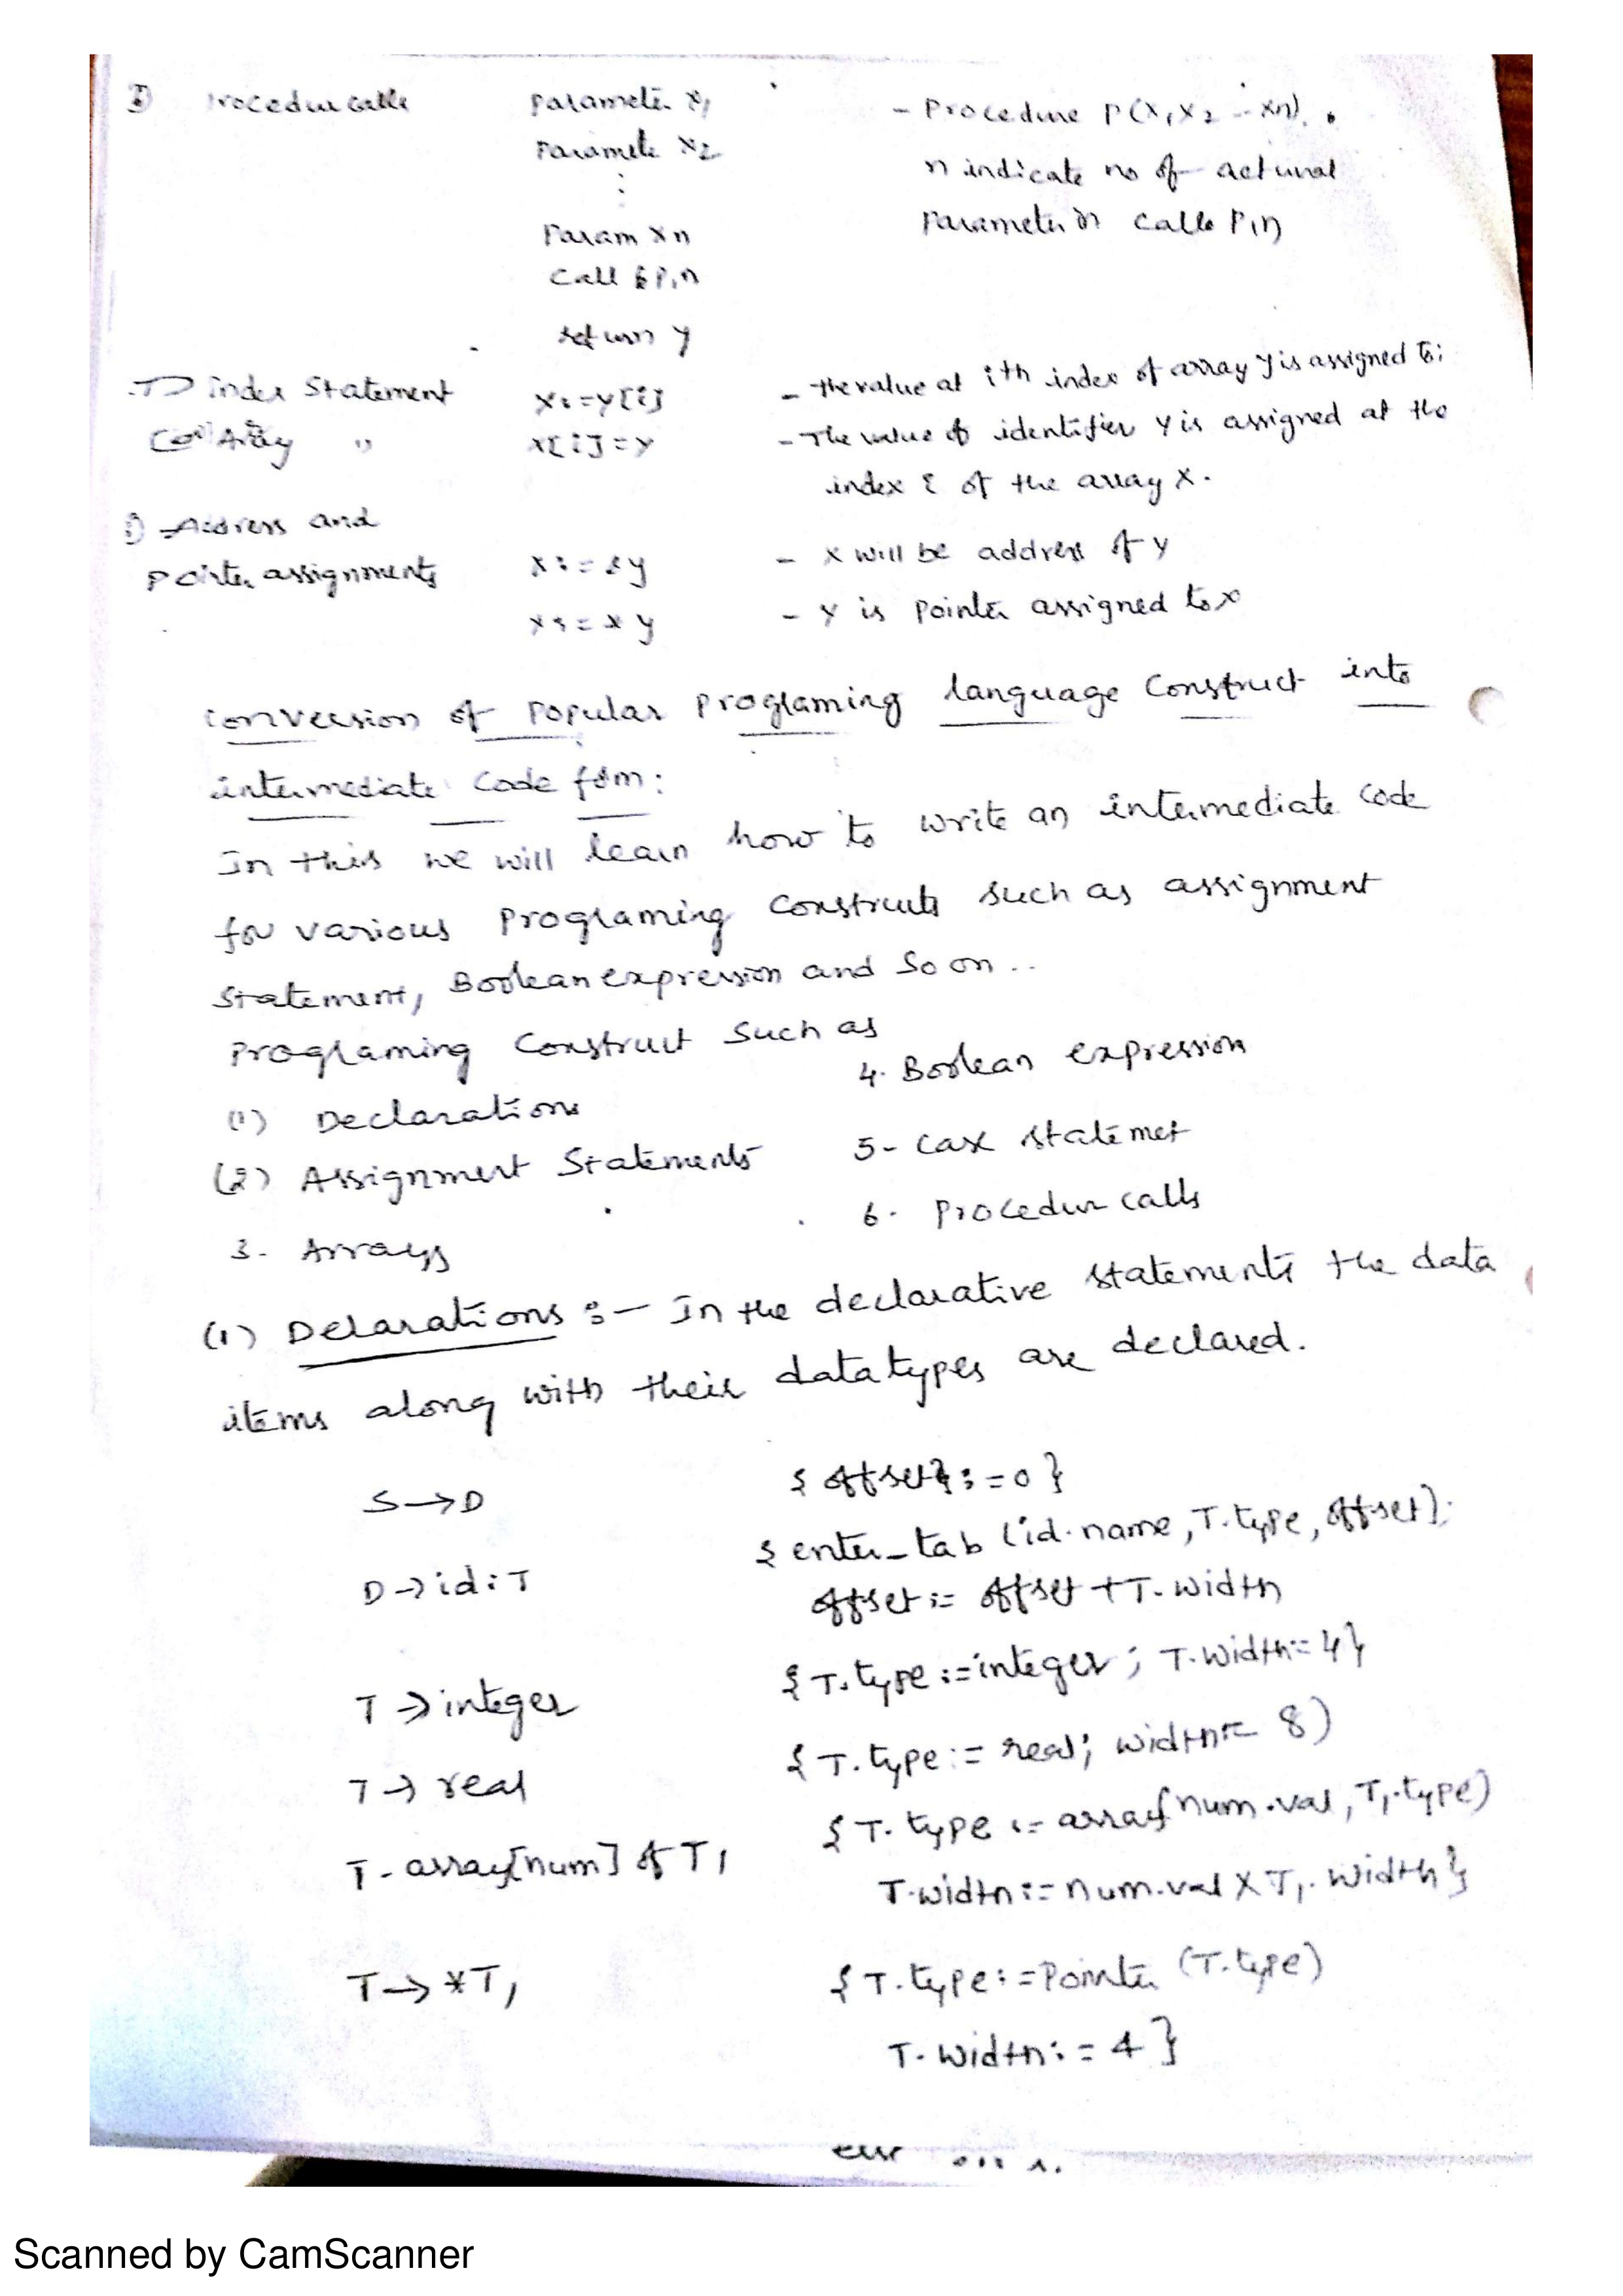 Procedure calls parameter x1 - Procedure P(x1 x2 -- xn).
Paramete x2 n indicate no of actunal
⋮
Param xn Parameter in calls P,n
Call P,n
return y
Index Statement x:=y[i] - the value at ith index of array y is assigned to i
(or) Array " x[i]=y - The value of identifier y is assigned at the
index i of the array x.
Address and
Pointer assignments x:=&y - x will be address of y
x:=*y - y is pointer assigned to x
Conversion of popular programing language Construct into
intermediate code form:
In this we will learn how to write an intermediate code
for various Programing Constructs such as assignment
Statement, Boolean expression and So on..
Programing Construct Such as
4. Boolean expression
(1) Declarations
5- Case statemet
(2) Assignment Statements
6. Procedur calls
3. Arrays
(1) Delarations :- In the declarative statements the data
items along with their datatypes are declared.
S→D { offset:=0 }
D→id:T { enter_tab (id.name,T.type,offset);
offset:= offset +T.width
T→integer { T.type:=integer; T.width:=4}
T→real { T.type:= real; width:= 8)
T-array[num] of T1 { T.type := array(num.val, T1.type)
T.width:=num.val X T1.width}
T→*T1 { T.type:=Pointer (T.type)
T.width:=4 }
Scanned by CamScanner